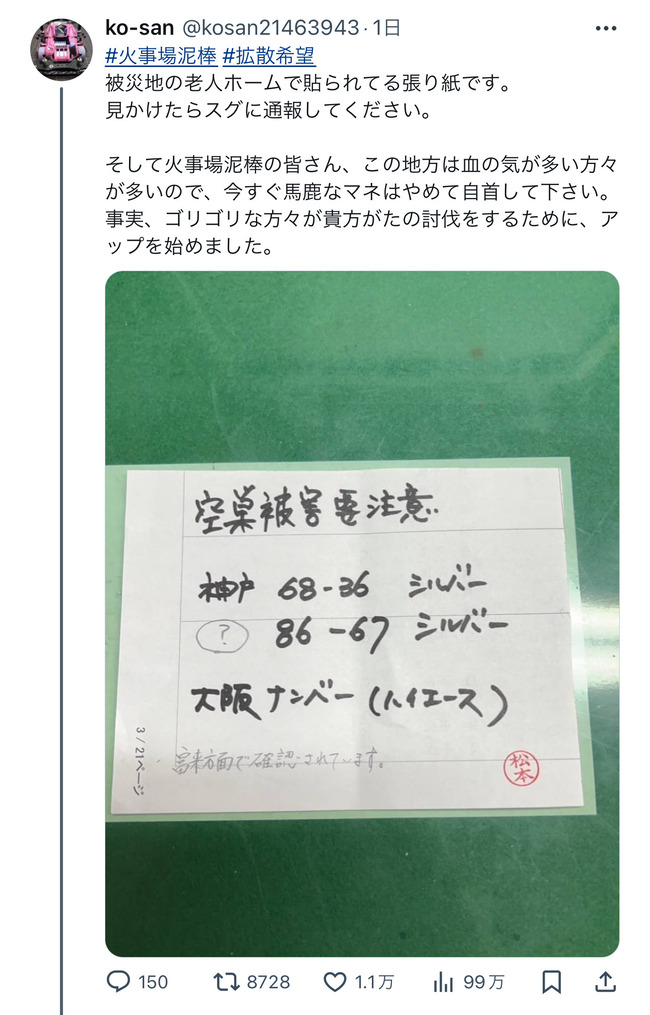 ko-san @kosan21463943·1日
#火事場泥棒 #拡散希望
被災地の老人ホームで貼られてる張り紙です。
見かけたらスグに通報してください。
そして火事場泥棒の皆さん、この地方は血の気が多い方々
が多いので、今すぐ馬鹿なマネはやめて自首して下さい。
事実、ゴリゴリな方々が貴方がたの討伐をするために、ア
ップを始めました。
空巣被害要注意.
神戸 68-36 シルバー
? 86-67 シルバー
大阪ナンバー(ハイエース)
3/21ページ
富来方面で確認されています。
松本
150 8728 1.1万 99万